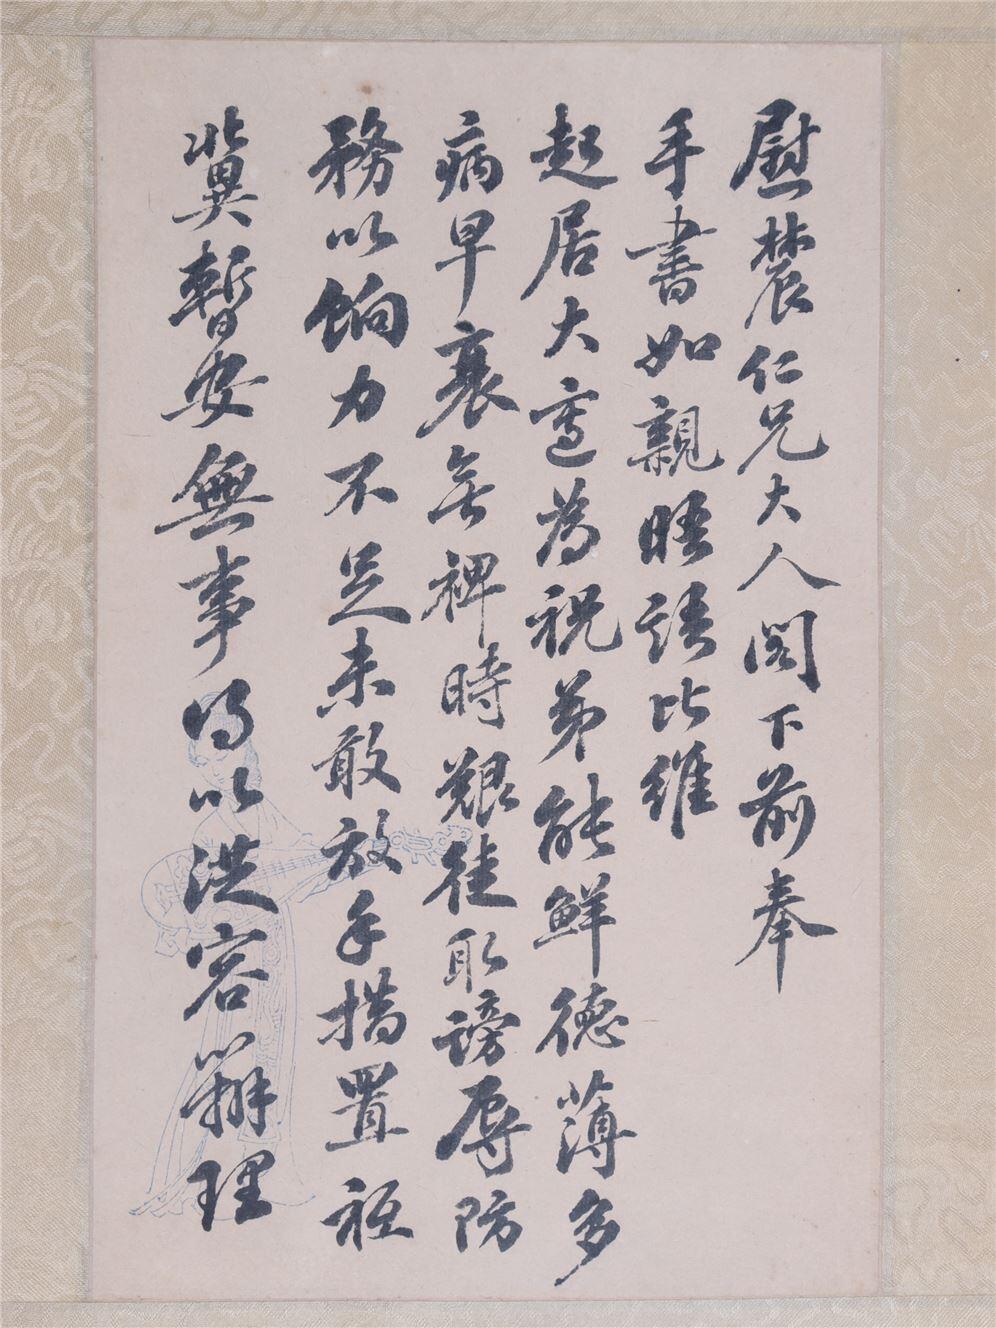 慰農仁兄大人閣下前奉
手書如親晤語比維
起居大適為祝弟能鮮德薄多
病早衰無裨時艱徒取謗辱防
務以餉力不足未敢放手措置祗
冀暫安無事得以洪容辦理